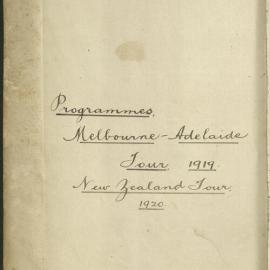 Programmes.
Melbourne-Adelaide
Tour 1919.
New Zealand Tour.
1920.